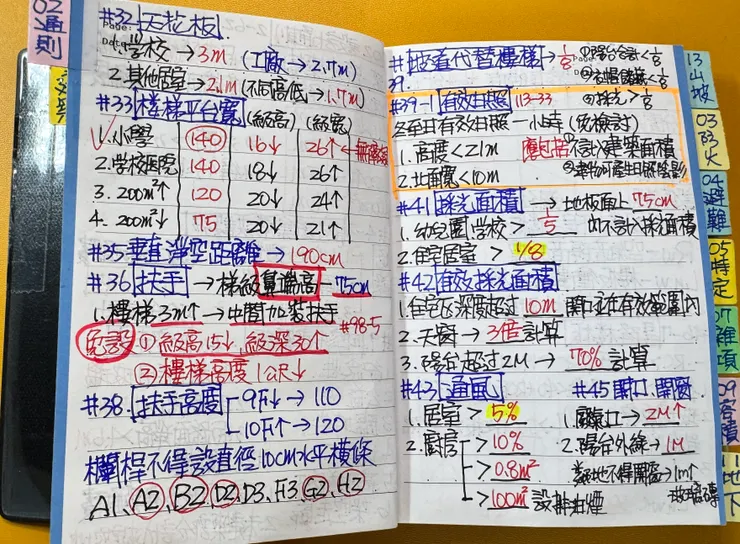 02 通則
#32 天花板
1. 學校→3m (工廠→2.7m)
2. 其他居室→2.1m (不同高低→1.7m)
#33 樓梯平台寬 (級高) (級寬)
1. 小學 140 16↓ 26↑
2. 學校醫院 140 18↓ 26↑
3. 200m²↑ 120 20↓ 24↑
4. 200m²↓ 75 20↓ 21↑
#35 垂直淨空距離→190cm
#36 扶手→梯級鼻端高—75cm
1. 樓梯3m↑→中間加裝扶手
免設 ①級高15↓,級深30↑ #98-5
②樓梯高度1m↓
#38. 扶手高度 9F↓→110
10F↑→120
欄桿不得設直徑10cm水平橫條
A1、A2、B2、D2、D3、F3、G2、H2
# 坡道代替樓梯→1/8
39.
#39-1 有效日照 113-33
冬至日有效日照一小時 (免檢討)
1. 高度<21m 應包括 ①不計入建築面積
2. 北面寬<10m ②建物可產生日照陰影
#41 採光面積→地板面上75cm
1. 幼兒園,學校>1/5 內不計入採光面積
2. 住宅居室>1/8
#42 有效採光面積
1. 住宅區深度超過10m 開口並在有效範圍內
2. 天窗→3倍計算
3. 陽台超過2M→70%計算
#43 通風 #45 開口.開窗
1. 居室>5% 1. 廢氣口→2M↑
2. 廚房>10% 2. 陽台外緣→1M
>0.8m² 鄰地不得開窗→1m↑
>100m²設排油煙 玻璃磚
13 山坡
03 防火
04 避難
05 特定
07 雜項
09 容積
11 地下